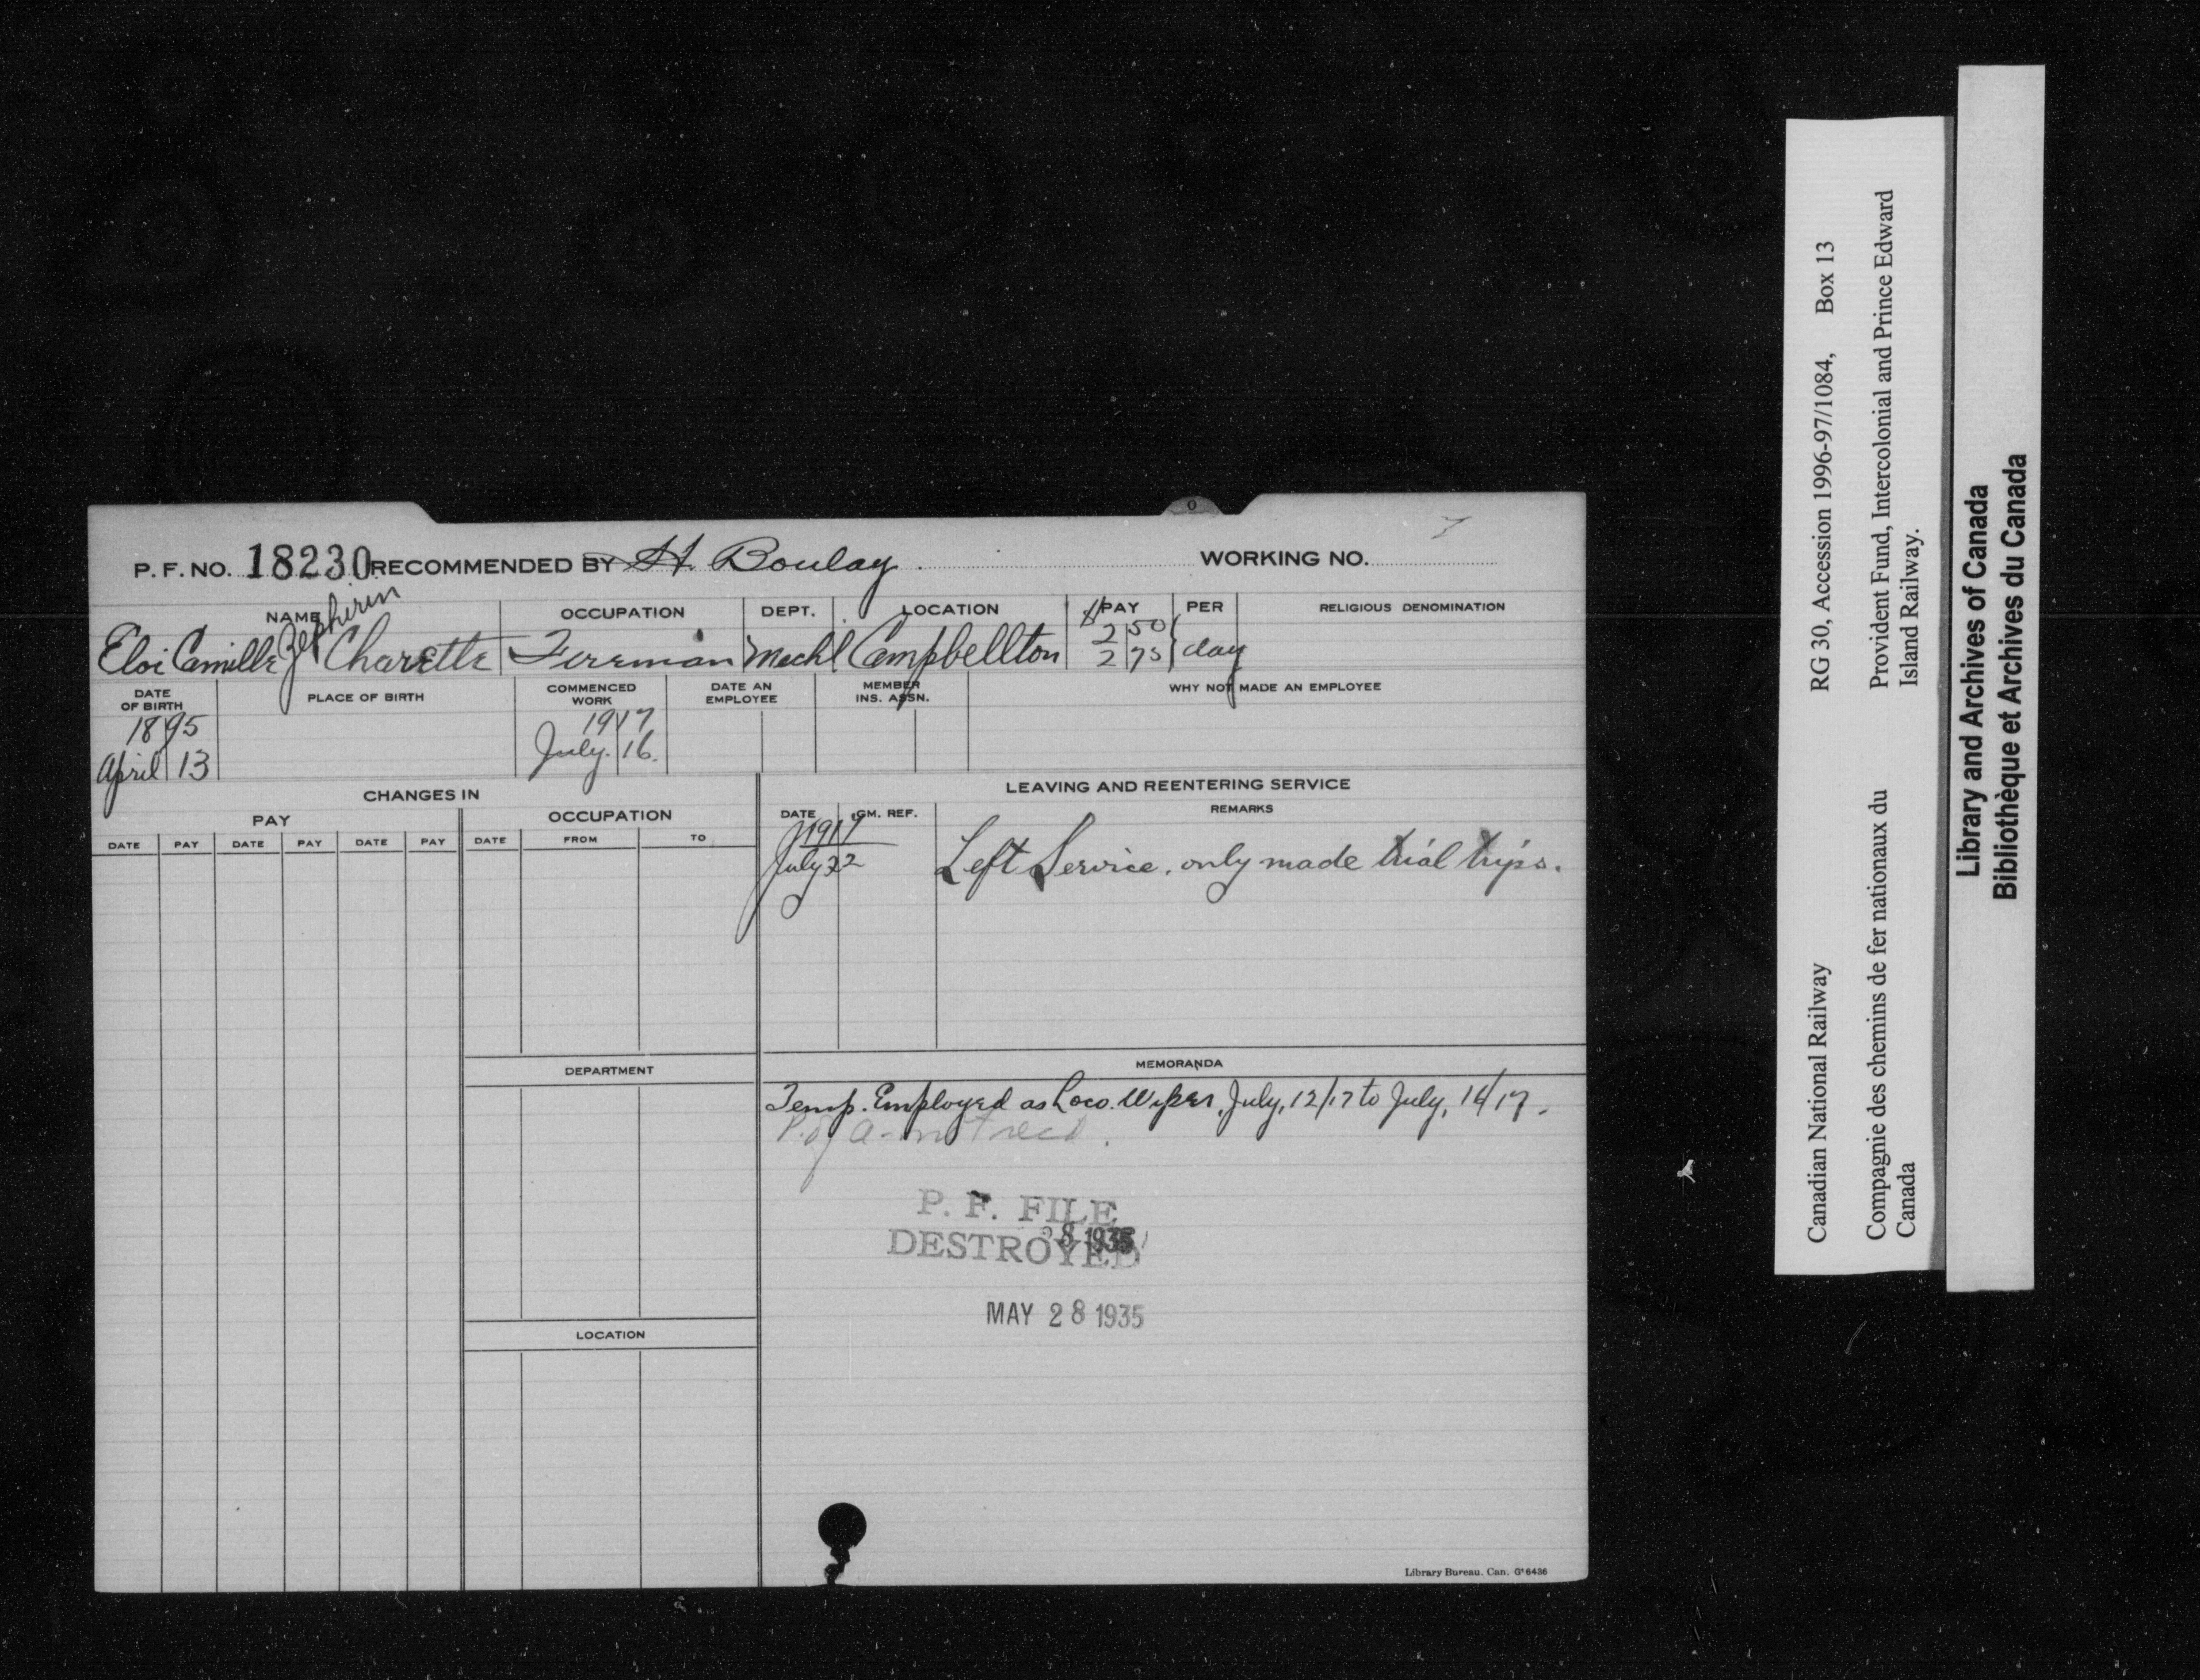 P. F. NO. 18230 RECOMMENDED BY H. Boulay WORKING NO.
NAME OCCUPATION DEPT. LOCATION $ PAY PER RELIGIOUS DENOMINATION
Zephirin
Eloi Camille Charette Fireman Mechl Campbellton 2 50 2 75 } day
DATE OF BIRTH PLACE OF BIRTH COMMENCED WORK DATE AN EMPLOYEE MEMBER INS. ASSN. WHY NOT MADE AN EMPLOYEE
1895 1917
April 13 July. 16.
CHANGES IN LEAVING AND REENTERING SERVICE
PAY OCCUPATION DATE GM. REF. REMARKS
DATE PAY DATE PAY DATE PAY DATE FROM TO
1917
July 22 Left Service, only made trial trips.
DEPARTMENT MEMORANDA
Temp. Employed as Loco. Wiper, July, 12/17 to July, 16/17.
P. of A - not recd.
P. F. FILE
DESTROYED
28 1935
MAY 28 1935
LOCATION
Library Bureau. Can. G16436
Canadian National Railway RG 30, Accession 1996-97/1084, Box 13
Compagnie des chemins de fer nationaux du Canada
Provident Fund, Intercolonial and Prince Edward Island Railway.
Library and Archives of Canada
Bibliothèque et Archives du Canada